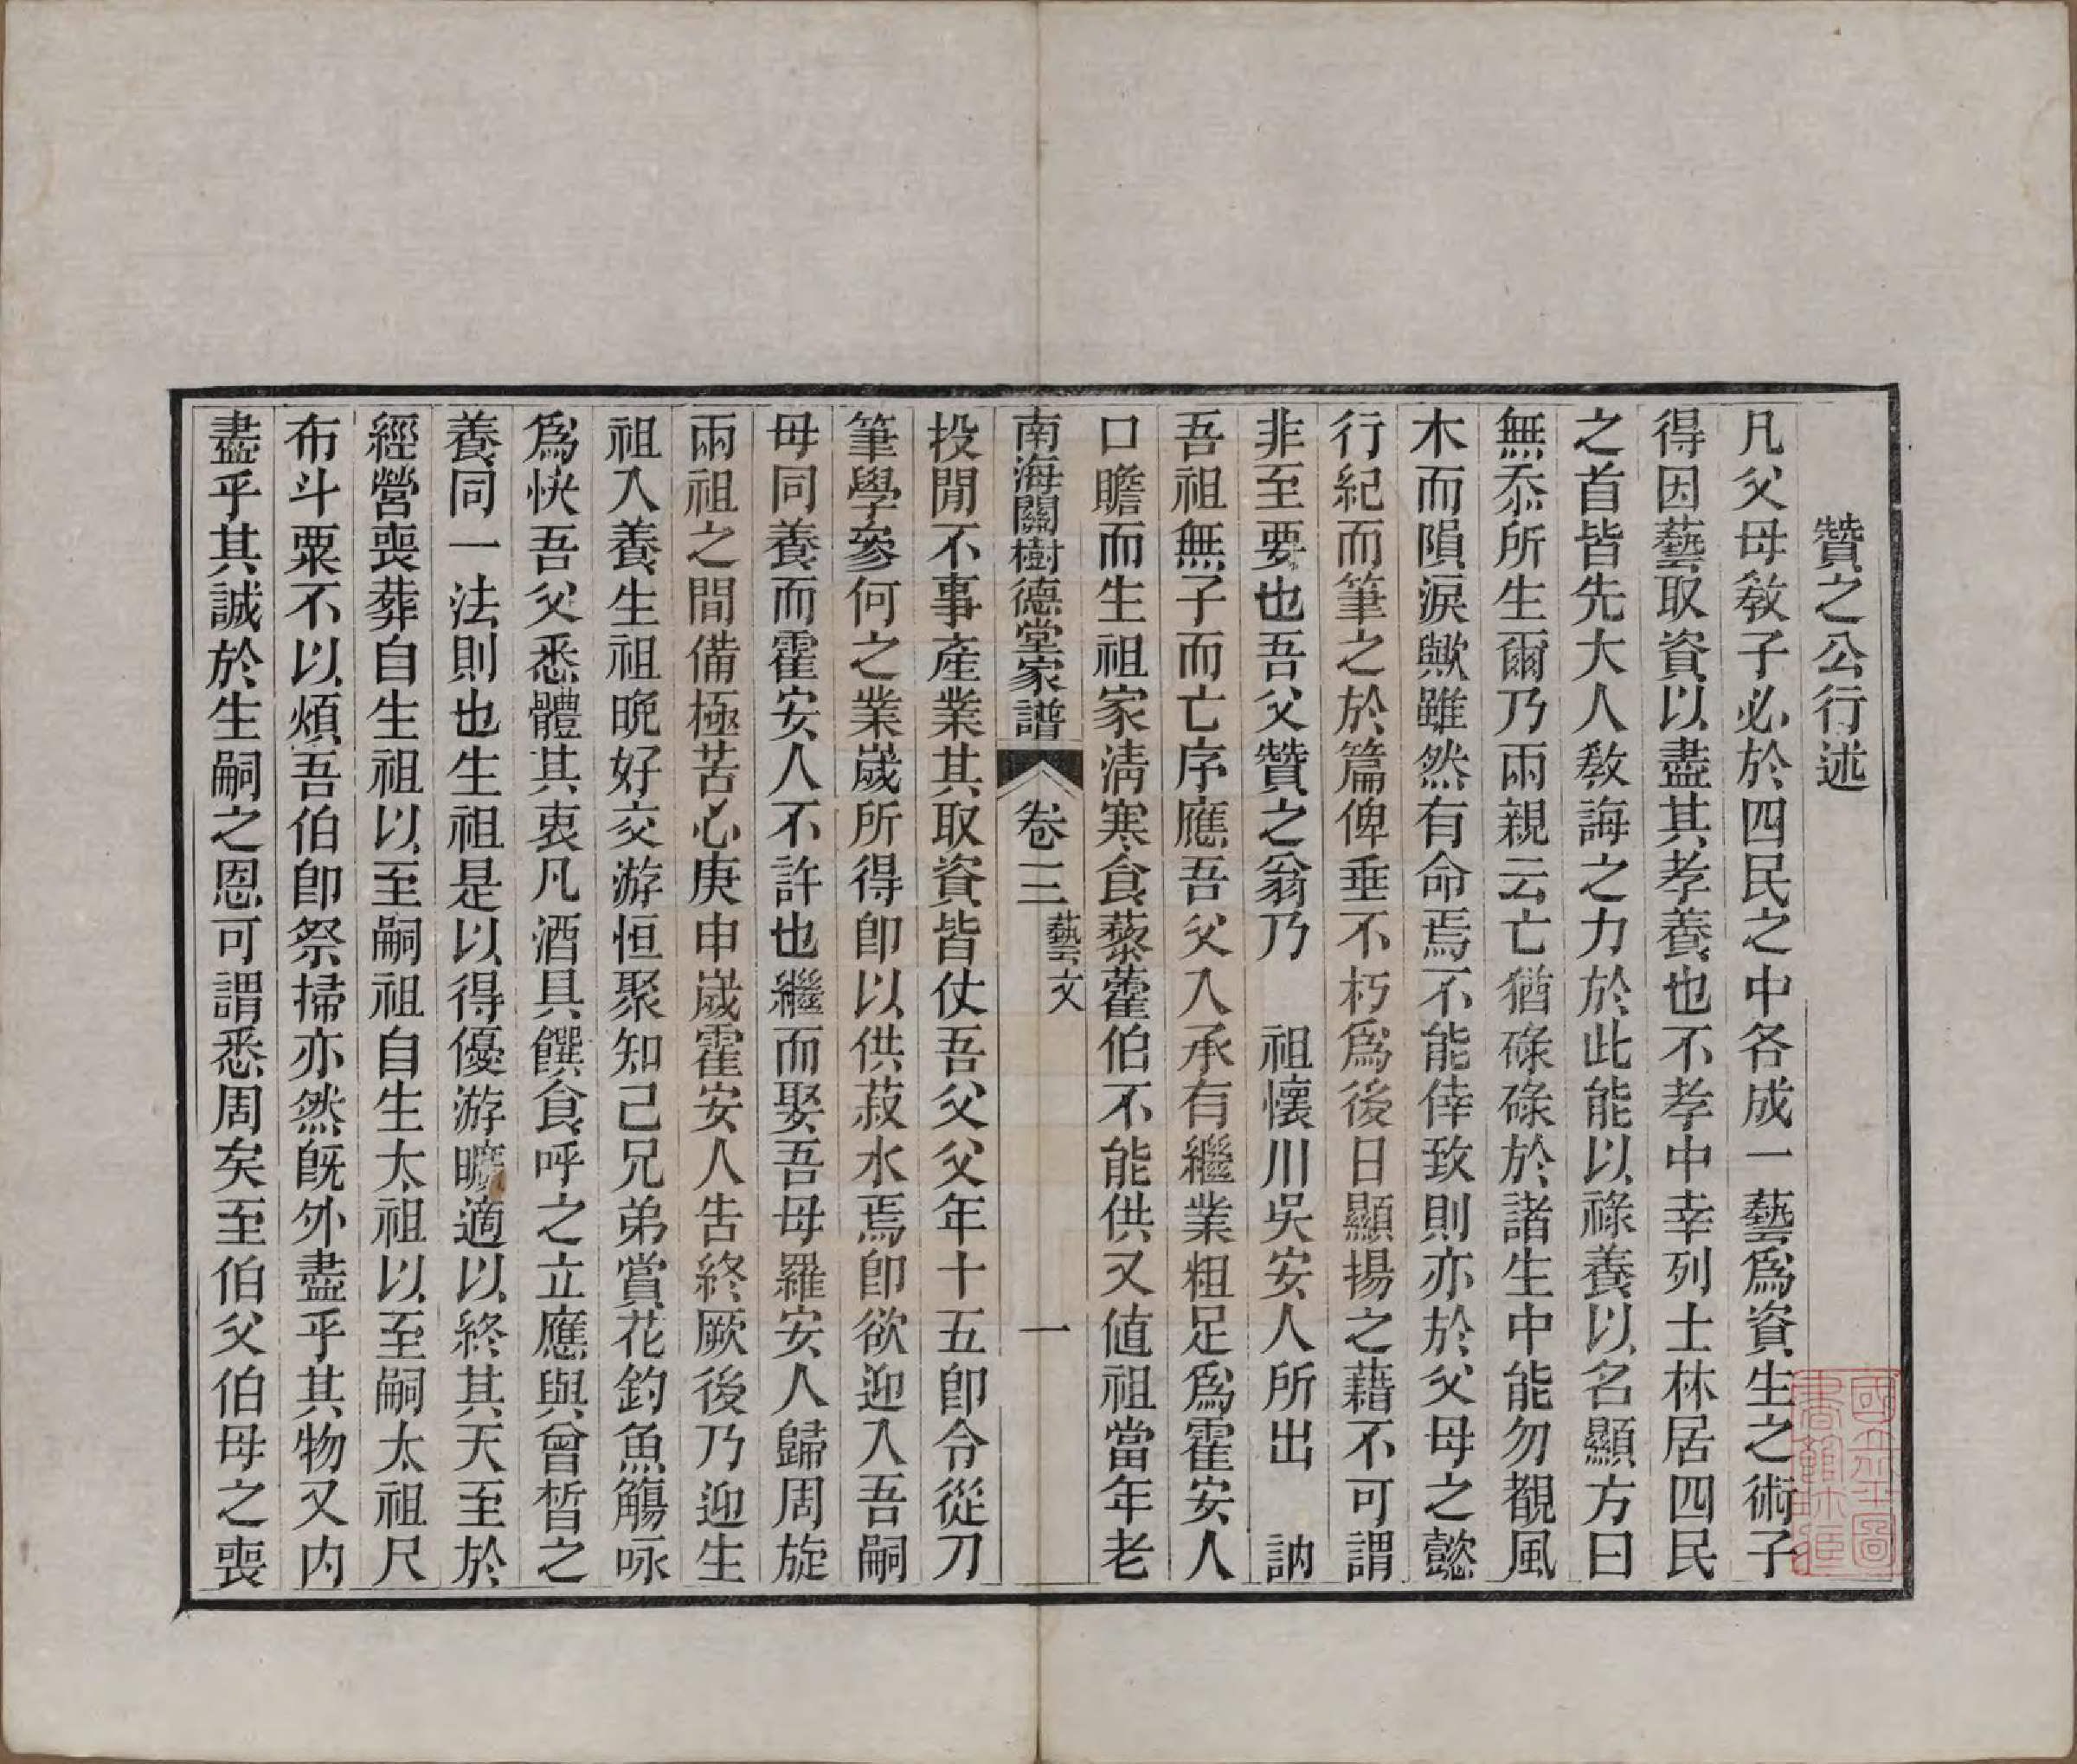 贊之公行述
凡父母敎子必於四民之中各成一藝爲資生之術子
得因藝取資以盡其孝養也不孝中幸列士林居四民
之首皆先大人敎誨之力於此能以祿養以名顯方曰
無忝所生爾乃兩親云亡猶碌碌於諸生中能勿覩風
木而隕淚歟雖然有命焉不能倖致則亦於父母之懿
行紀而筆之於篇俾垂不朽爲後日顯揚之藉不可謂
非至要也吾父贊之翁乃　祖懷川吳安人所出　訥
吾祖無子而亡序應吾父入承有繼業粗足爲霍安人
口瞻而生祖家淸寒食藜藿伯不能供又値祖當年老
南海關樹德堂家譜　卷三　藝文　一
投閒不事產業其取資皆仗吾父父年十五卽令從刀
筆學叅何之業嵗所得卽以供菽水焉卽欲迎入吾嗣
母同養而霍安人不許也繼而娶吾母羅安人歸周旋
兩祖之間備極苦心庚申嵗霍安人告終厥後乃迎生
祖入養生祖晩好交游恒聚知己兄弟賞花釣魚觴咏
爲快吾父悉體其衷凡酒具饌食呼之立應與曾晳之
養同一法則也生祖是以得優游曠適以終其天至於
經營喪葬自生祖以至嗣祖自生太祖以至嗣太祖尺
布斗粟不以煩吾伯卽祭掃亦然旣外盡乎其物又内
盡乎其誠於生嗣之恩可謂悉周矣至伯父伯母之喪